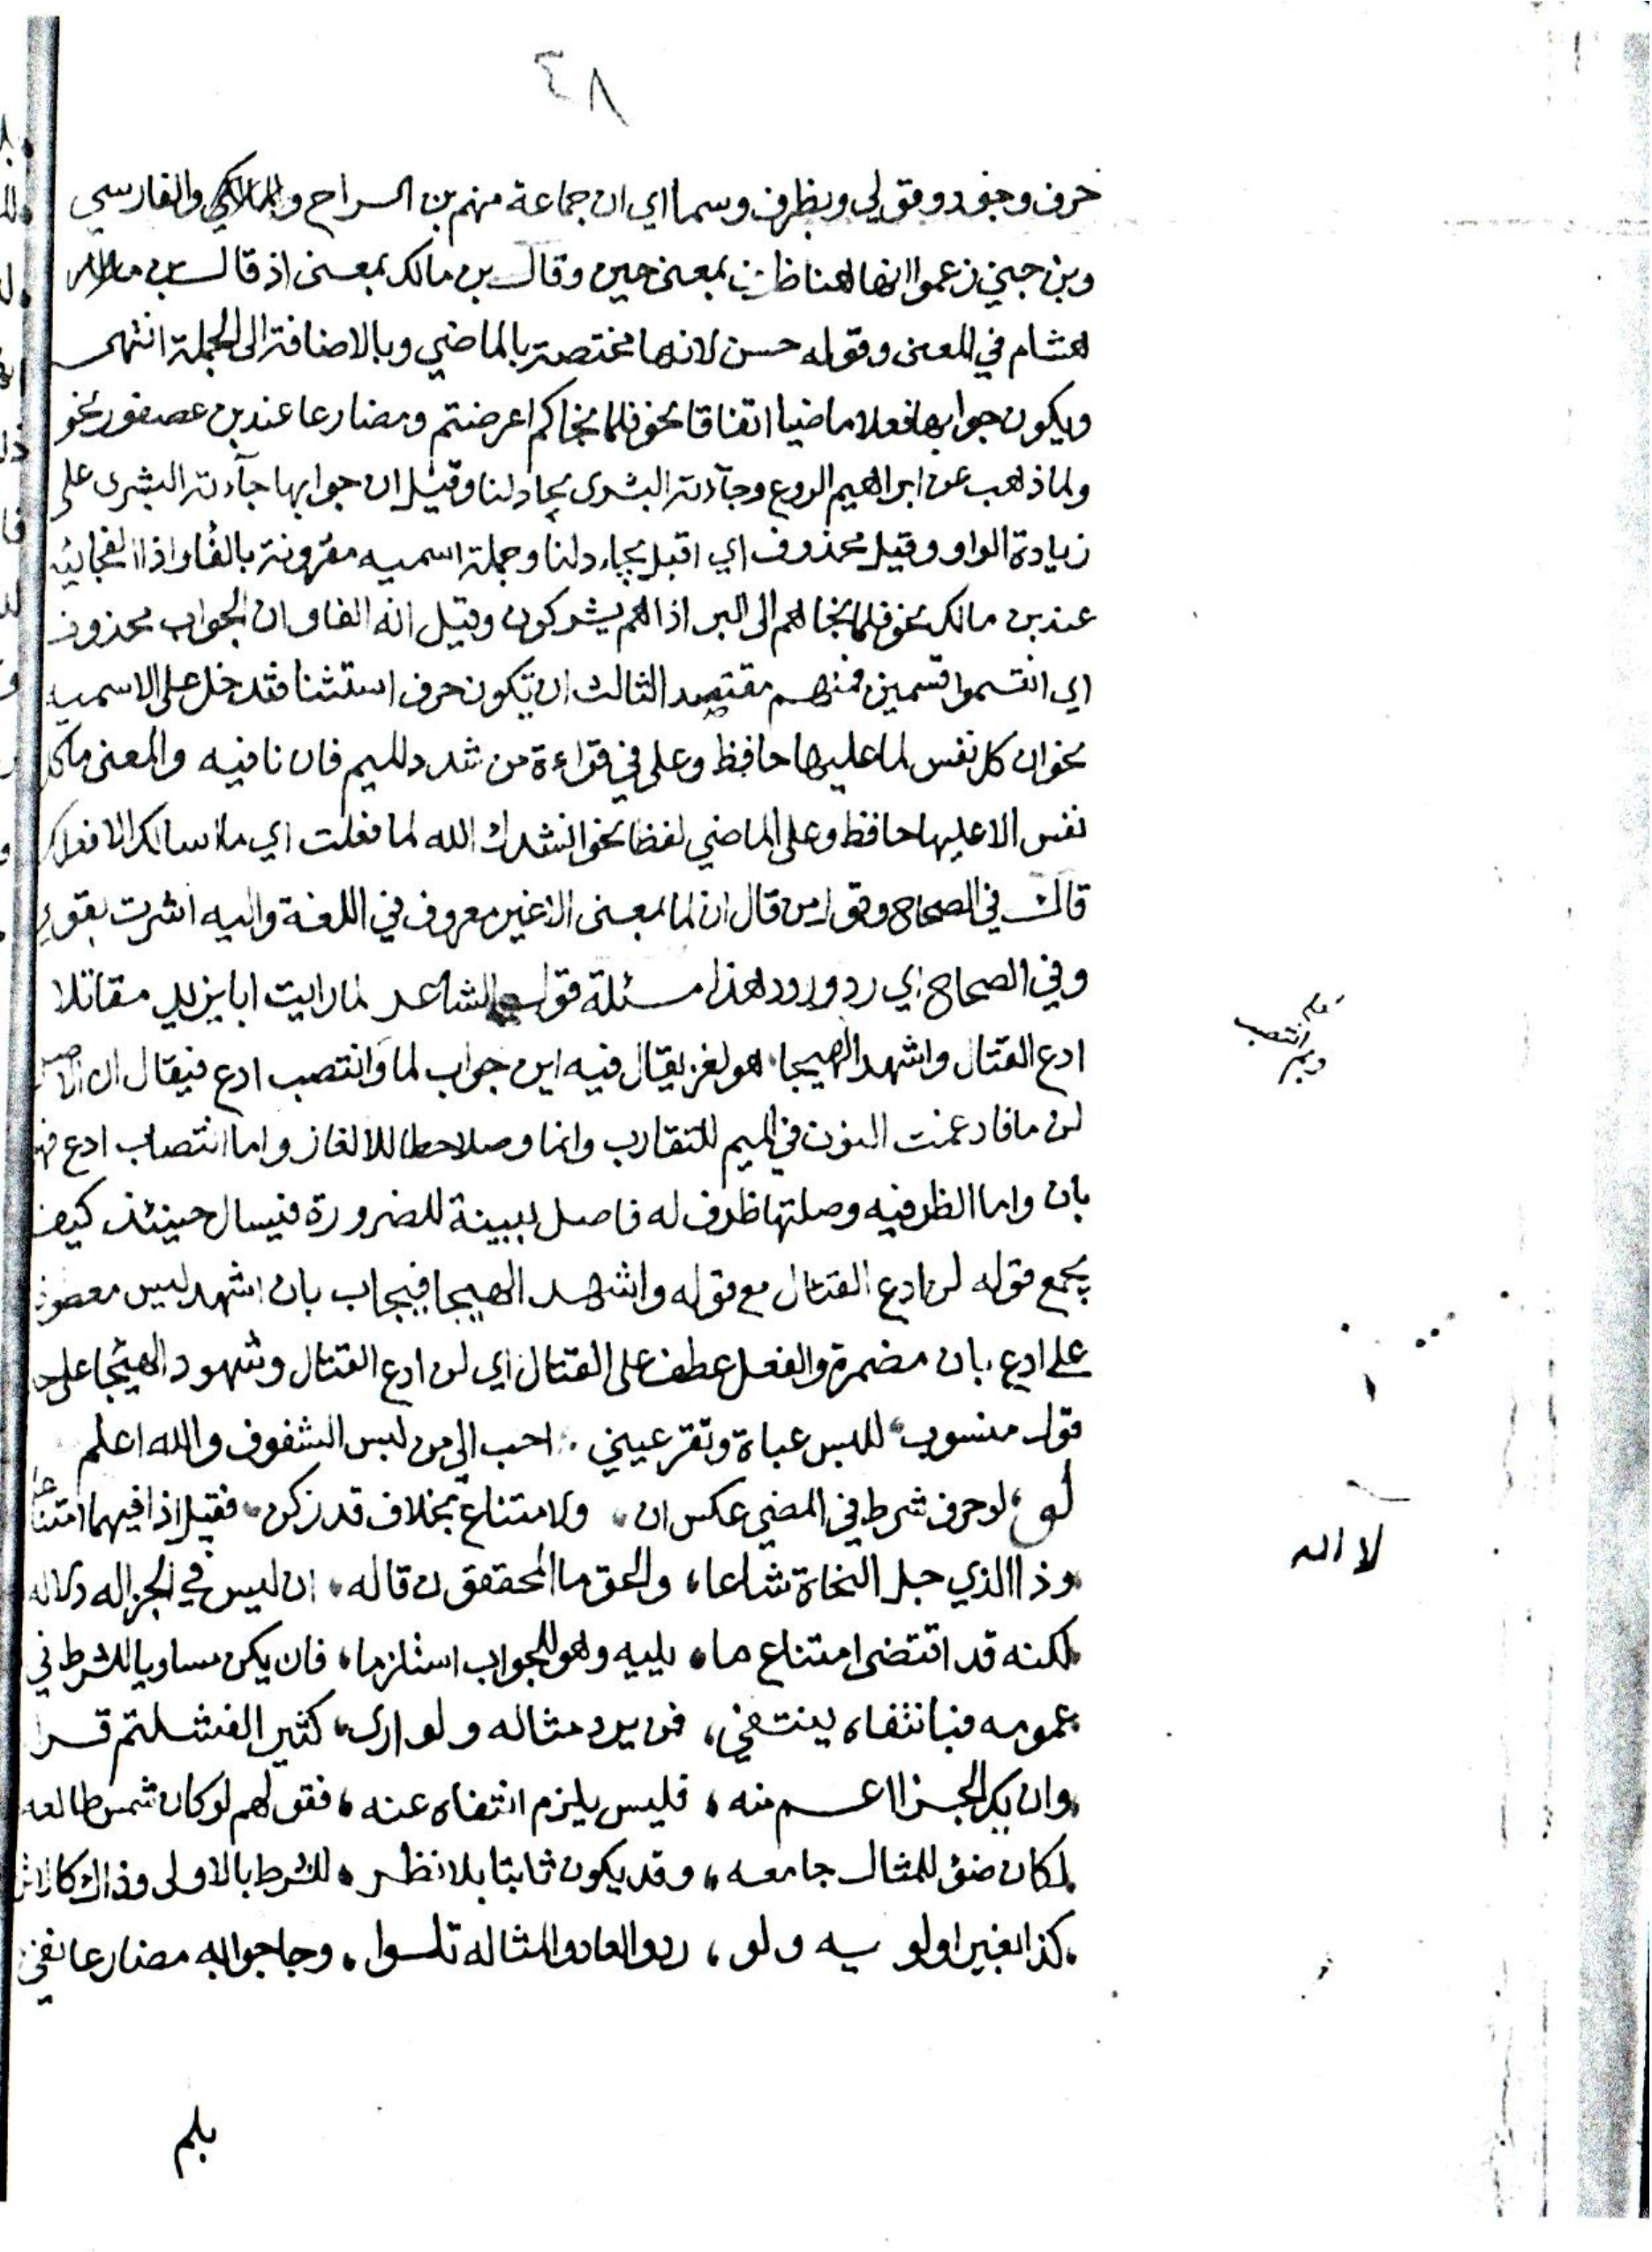 ٨٤
حرف وجود وقولي وبظرف وسما اي ان جماعة منهم بن السراج والفارسي
وبن جني زعموا انها هنا ظرف بمعنى حين وقال بن مالك بمعنى اذ قال بن
هشام في المعنى وقوله حسن لانها مختصة بالماضي وبالاضافة الى الجملة انتهى
ويكون جوابها فعلا ماضيا اتفاقا نحو فلما نجاكم اعرضتم ومضارعا عند بن عصفور نحو
ولما ذهب عن ابراهيم الروع وجآءته البشرى يجادلنا وقيل ان جوابها جآءته البشرى على
زيادة الواو وقيل محذوف اي اقبل يجادلنا وجملة اسميه مقرونة بالفا واذا الفجائيه
عند بن مالك نحو فلما نجاهم الى البر اذا هم يشركون وقيل انه الفا وان الجواب محذوف
اي انقسموا قسمين فمنهم مقتصد الثالث ان تكون حرف استثنا فتدخل على الاسميه
نحو ان كل نفس لما عليها حافظ وعلى في قراءة من شدد للميم فان نافيه والمعنى ما كل
نفس الا عليها حافظ وعلى الماضي لفظا نحو انشدك الله لما فعلت اي ما اسالك الا فعلك
قال في الصحاح وقول من قال ان لما بمعنى الا غير معروف في اللغة واليه اشرت بقولي
وفي الصحاح اي رد ورود هذا مسئلة قول الشاعر لما رايت ابا يزيد مقاتلا
ادع القتال واشهد الهيجا هو لغز يقال فيه اين جواب لما وانتصب ادع فيقال ان الاصل
لن ما فادغمت النون في الميم للتقارب وانما وصلا خطا للالغاز واما انتصاب ادع فهو
بان واما الظرفيه وصلتها ظرف له فاصل ببينة للضرورة فيسال حينئذ كيف
يجمع قوله لن ادع القتال مع قوله واشهد الهيجا فيجاب بان اشهد ليس معطوف
على ادع بان مضمرة والفعل عطف على القتال اي لن ادع القتال وشهود الهيجا على حد
قول منسوب للبس عباة وتقر عيني احب الي من لبس الشفوف والله اعلم
لو لو حرف شرط في المضي عكس ان ولامتناع بخلاف قد زكن فقيل اذا فيهما امتناعا
وذا الذي جل النحاة شاعا والحق ما المحققون قاله ان ليس في الجزا له دلاله
لكنه قد اقتضى امتناع ما يليه وهو للجواب استلزما فان يكن مساويا للشرط في
عمومه فبانتفاه ينتفي فمن يرد مثاله ولو ارى كثير الفشلتم قرا
وان يك الجزا اعم منه فليس يلزم انتفاه عنه فقولهم لو كان شمس طالعه
لكان ضوء للمثال جامعه وقد يكون ثابتا بلا نظر للشرط بالاولى وذاك كالاثر
كذا بغير اولويه ولو ردوا لعادوا المثاله تلوا وجا جوابه مضارعا نفي
انتصب
لا اله
بلم